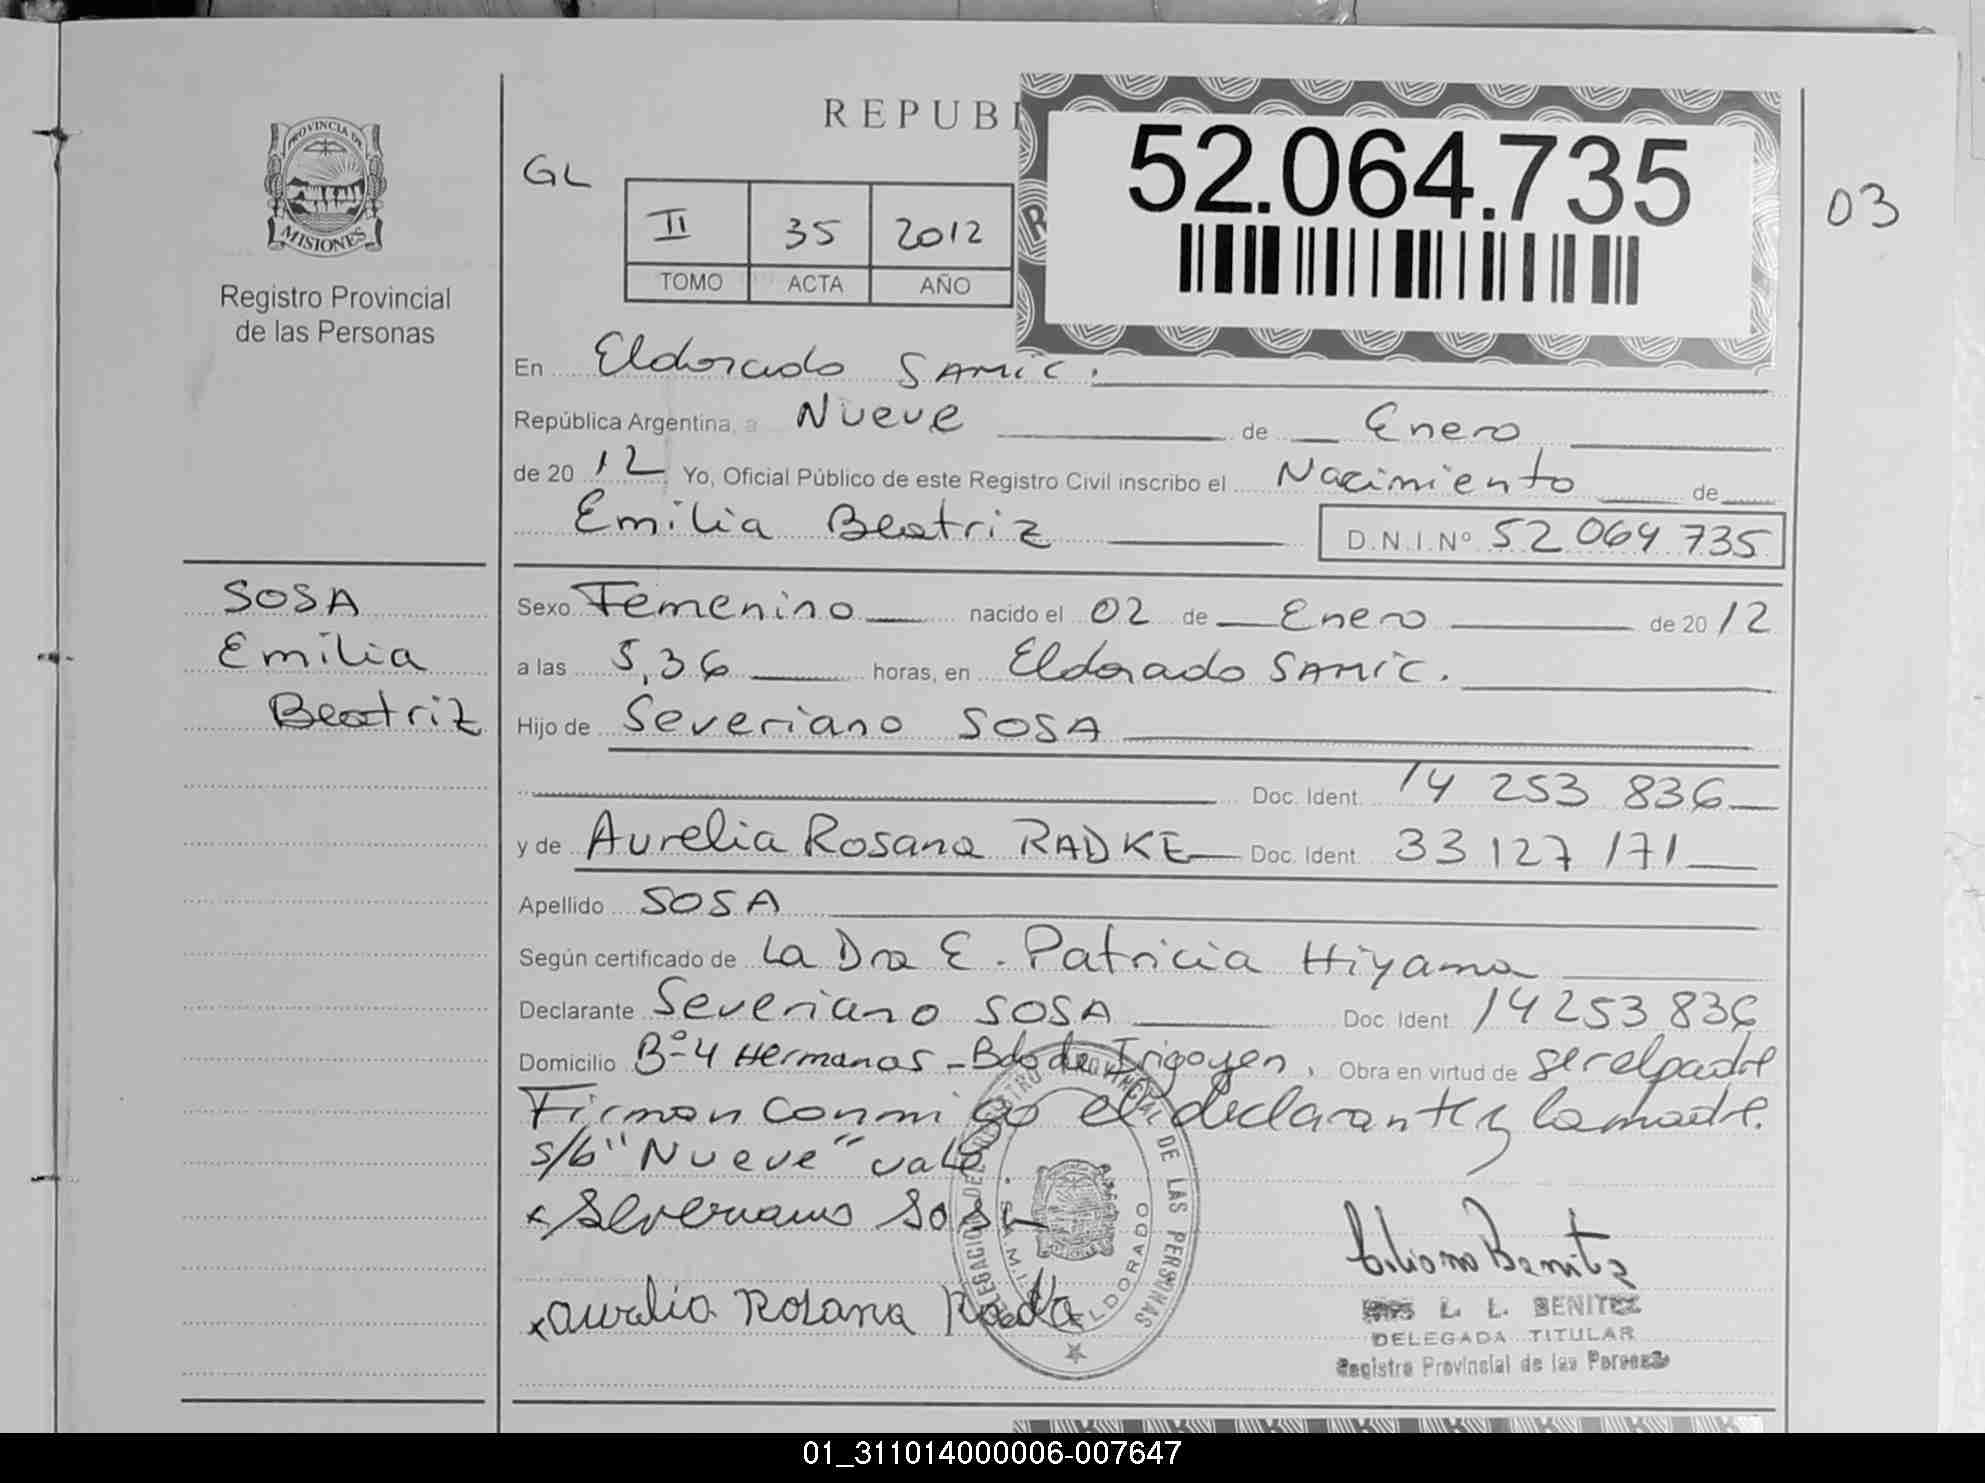 PROVINCIA DE
MISIONES
Registro Provincial
de las Personas
SOSA
Emilia
Beatriz
REPUBI
52.064.735
GL
03
II 35 2012
TOMO ACTA AÑO
En Eldorado SAMIC.
República Argentina, a Nueve de Enero
de 2012 Yo, Oficial Público de este Registro Civil inscribo el Nacimiento de
Emilia Beatriz D.N.I.Nº 52 064 735
Sexo Femenino nacido el 02 de Enero de 2012
a las 5,36 horas, en Eldorado SAMIC.
Hijo de Severiano SOSA
Doc. Ident. 14 253 836
y de Aurelia Rosana RADKE Doc. Ident. 33 127 171
Apellido SOSA
Según certificado de La Dra E. Patricia Hiyama
Declarante Severiano SOSA Doc. Ident. 14 253 836
Domicilio Bº 4 Hermanos - Bdo de Irigoyen, Obra en virtud de ser el padre
Firman conmigo el declarante y la madre.
s/b "Nueve" vale
x Severiano Sosa
x Aurelia Rosana Radke
DELEGACION DEL REGISTRO PROVINCIAL DE LAS PERSONAS
S.A.M.I.C. ELDORADO
Liliana Benitez
L. L. BENITEZ
DELEGADA TITULAR
Registro Provincial de las Personas
01_311014000006-007647